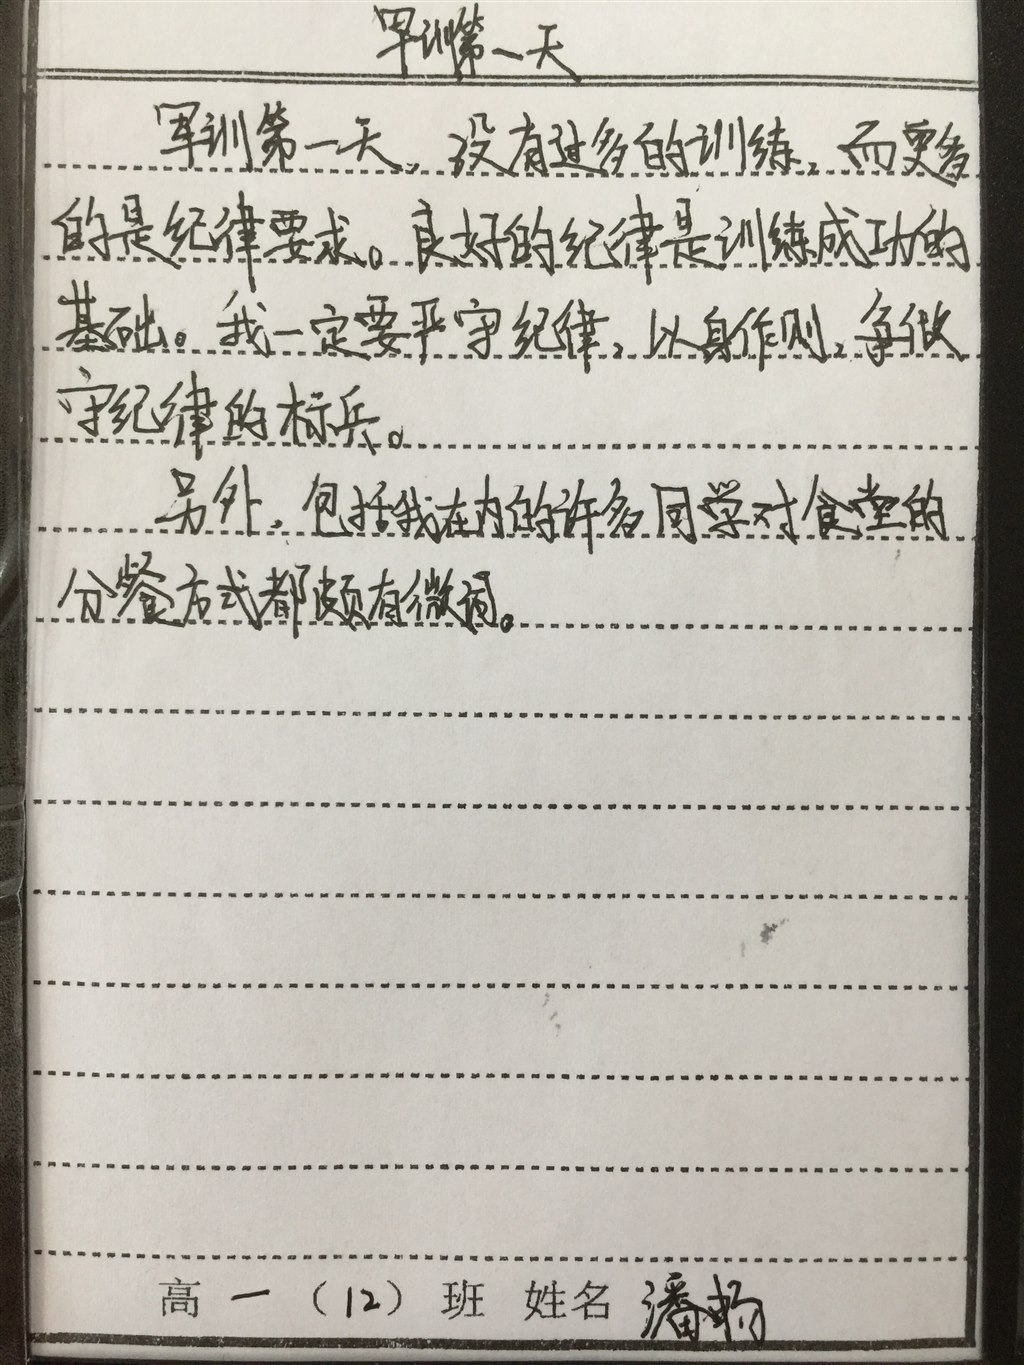 军训第一天
军训第一天，没有过多的训练，而更多
的是纪律要求。良好的纪律是训练成功的
基础。我一定要严守纪律，以身作则，争做
守纪律的标兵。
另外，包括我在内的许多同学对食堂的
分餐方式都颇有微词。
高一（12）班 姓名 潘畅